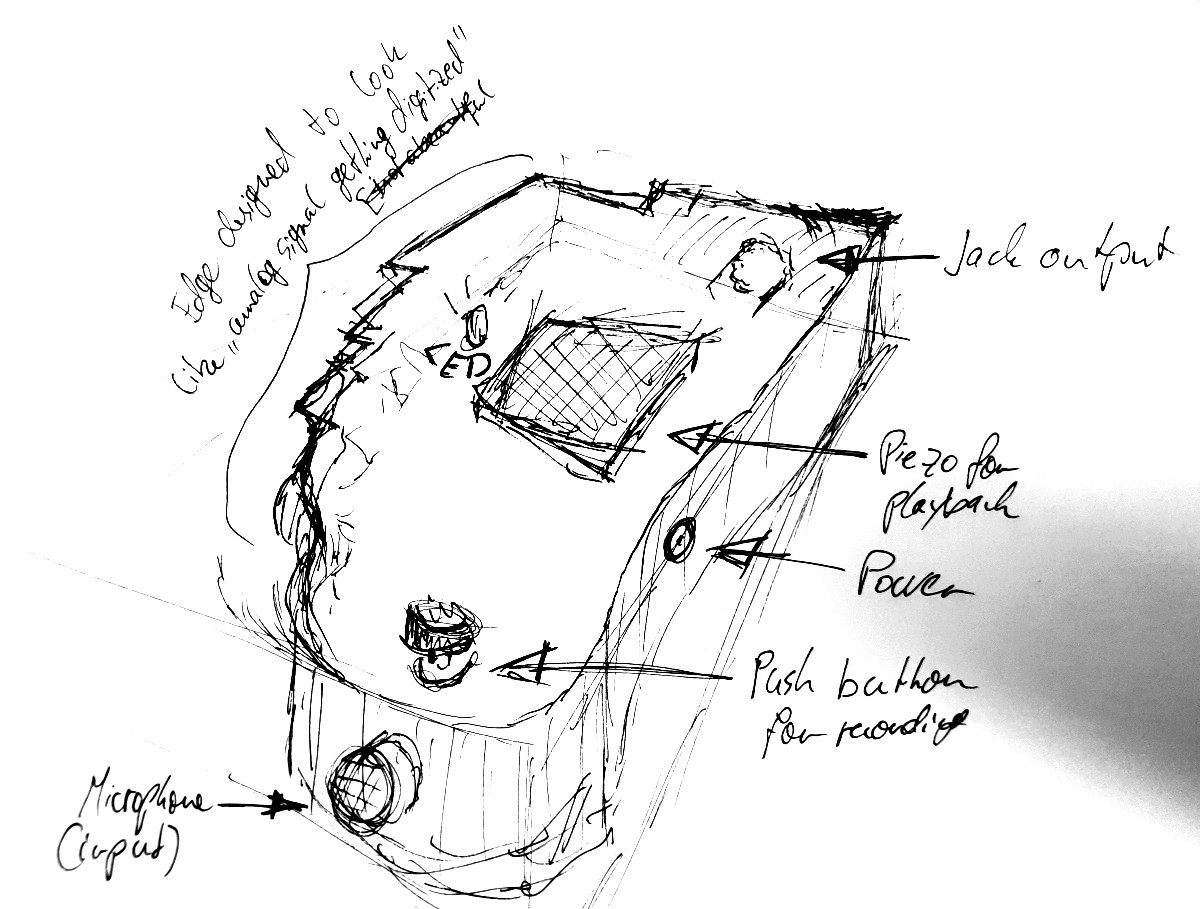 Edge designed to look
like „analog signal getting digitized"
Jack output
LED
Piezo for
playback
Power
Push button
for recording
Microphone
(input)